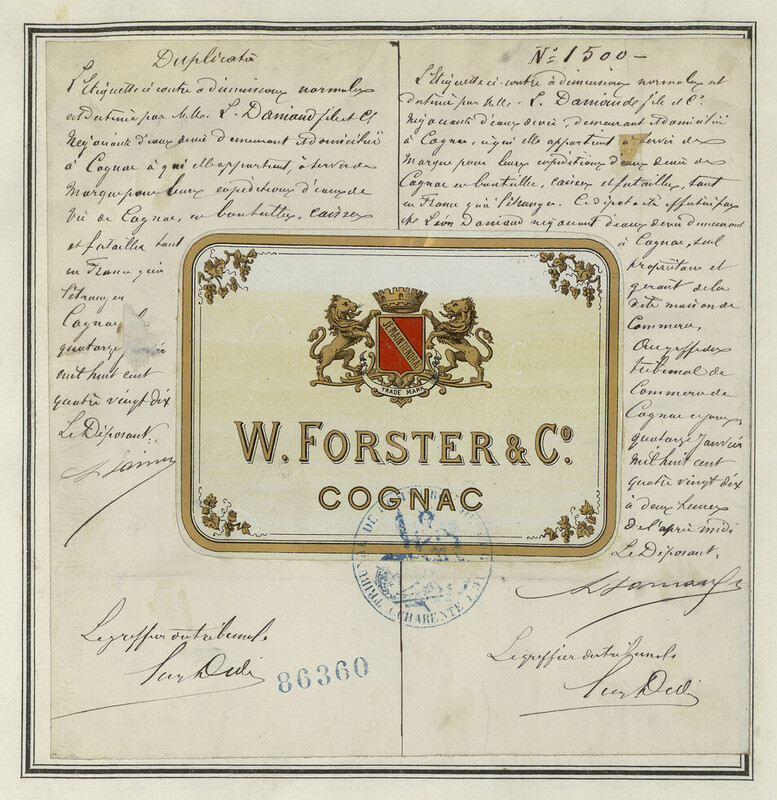 Duplicata
L'Etiquette ci contre a dimensions normales
est destinée par MMrs. L. Damiaud fils et Cie
Négociants d'eaux de vie demeurant et domiciliés
à Cognac à qui elle appartient, à servir de
Marque pour leurs expéditions d'eaux de
Vie de Cognac, en bouteilles, caisses
et futailles tant
en France qu'à
l'étranger
Cognac, le
quatorze janvier
mil huit cent
quatre vingt dix
Le Déposant,
Le greffier du tribunal
86360
No. 1500 -
L'Etiquette ci-contre a dimensions normales est
destinée par MMrs. L. Damiaud fils et Cie
Négociants d'eaux de vie, demeurant et domiciliés
à Cognac, à qui elle appartient à servir de
Marque pour leurs expéditions d'eaux de vie de
Cognac en bouteilles, caisses et futailles, tant
en France qu'à l'étranger. Ce dépôt a été effectué par
Mr Léon Damiaud négociant d'eaux de vie demeurant
à Cognac, seul
propriétaire et
gérant de la
dite maison de
Commerce,
Au greffe du
tribunal de
Commerce de
Cognac ce jour,
quatorze janvier
mil huit cent
quatre vingt dix
à deux heures
de l'après midi
Le Déposant,
Le greffier du tribunal
JE MAINTIENDRAI
TRADE MARK
W. FORSTER & Co.
COGNAC
TRIBUNAL DE COMMERCE DE
(CHARENTE)